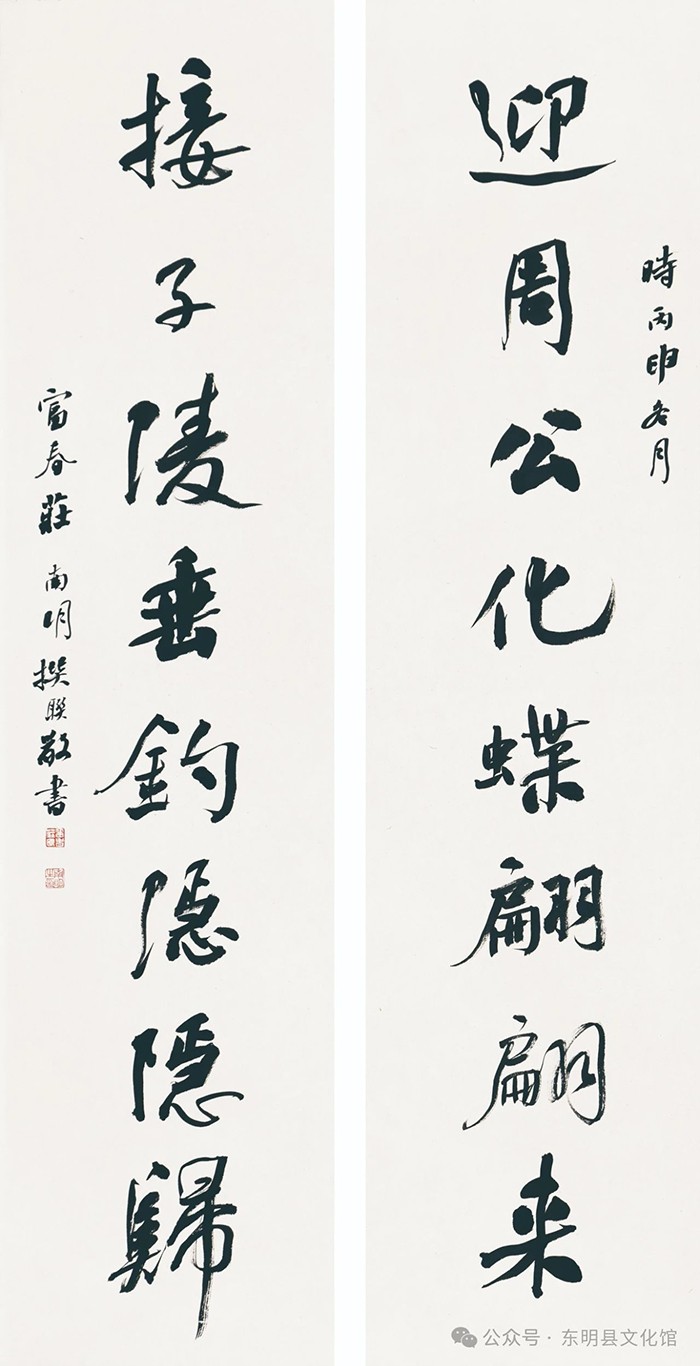 時丙申冬月
迎周公化蝶翩翩来
接子陵垂釣隱隱歸
富春莊南明撰联敬書
公众号·东明县文化馆